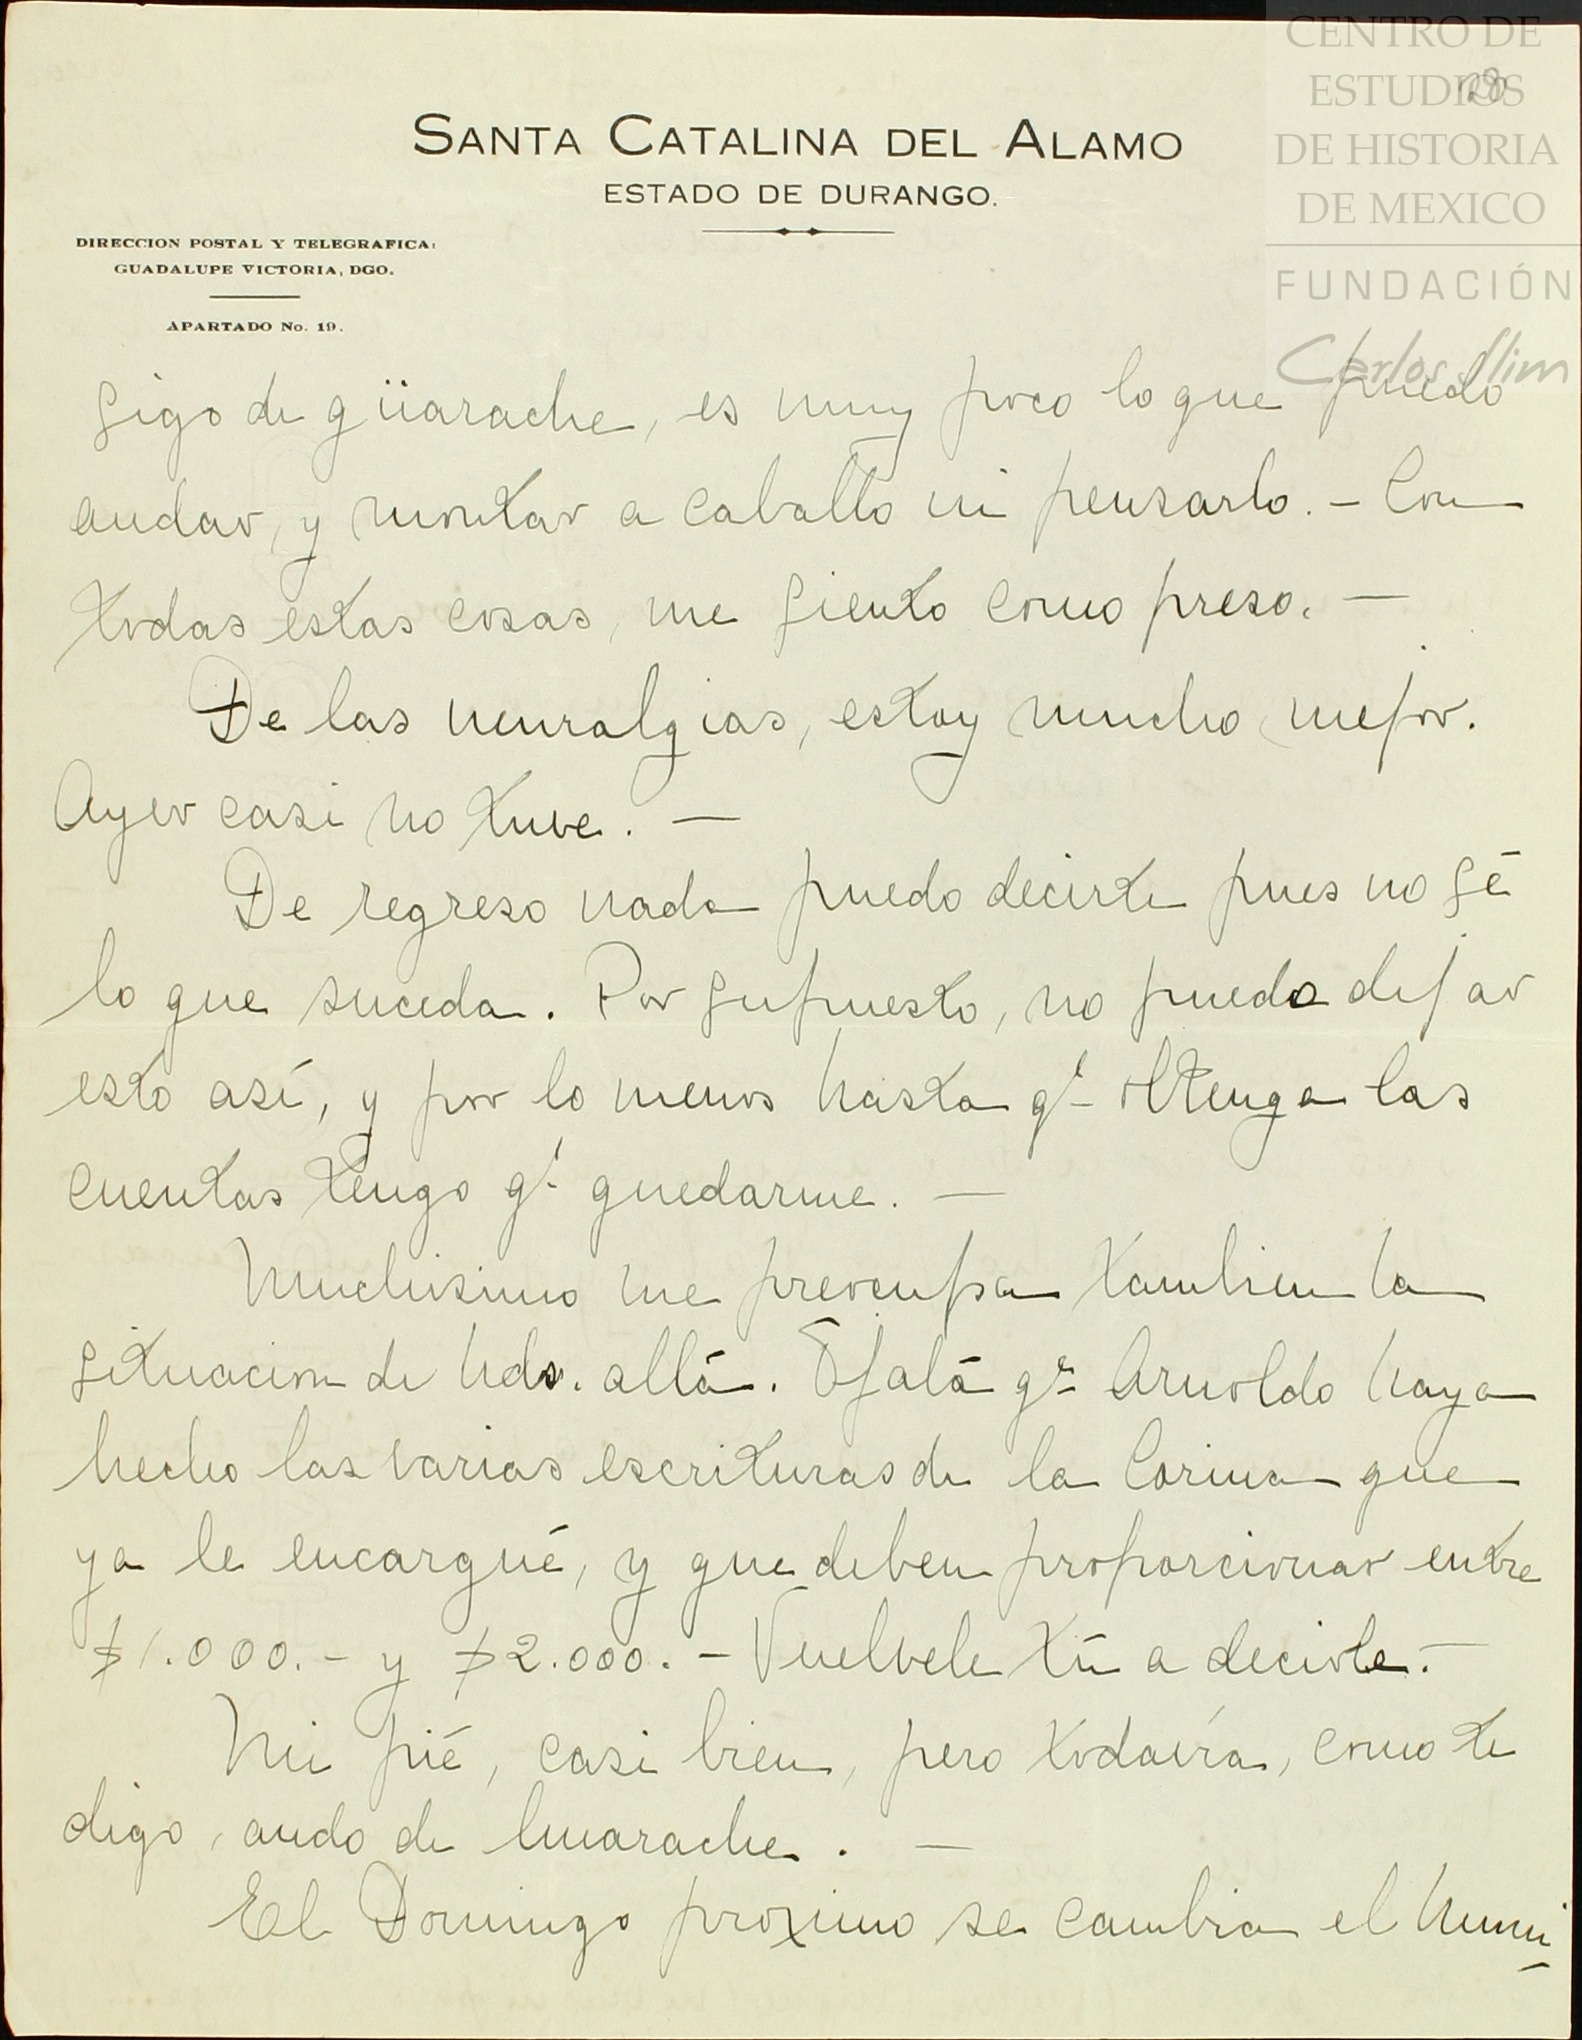 CENTRO DE
ESTUDIOS
DE HISTORIA
DE MEXICO
FUNDACIÓN
Carlos Slim
SANTA CATALINA DEL ALAMO
ESTADO DE DURANGO.
DIRECCION POSTAL Y TELEGRAFICA:
GUADALUPE VICTORIA, DGO.
APARTADO No. 19.
sigo de güarache, es muy poco lo que puedo
andar, y montar a caballo ni pensarlo. - Con
todas estas cosas, me siento como preso. -
De las neuralgias, estoy mucho mejor.
Ayer casi no tuve. -
De regreso nada puedo decirte pues no sé
lo que suceda. Por supuesto, no puedo dejar
esto así, y por lo menos hasta qe obtenga las
cuentas tengo qe quedarme. -
Muchisimo me preocupa tambien la
situacion de Uds. allá. Ojalá qe Arnoldo haya
hecho las varias escrituras de la Corina que
ya le encargué, y que deben proporcionar entre
$1.000.- y $2.000. - Vuelvele tú a decirle. -
Mi pié, casi bien, pero todavía, como te
digo, ando de huarache. -
El Domingo proximo se cambia el Muni